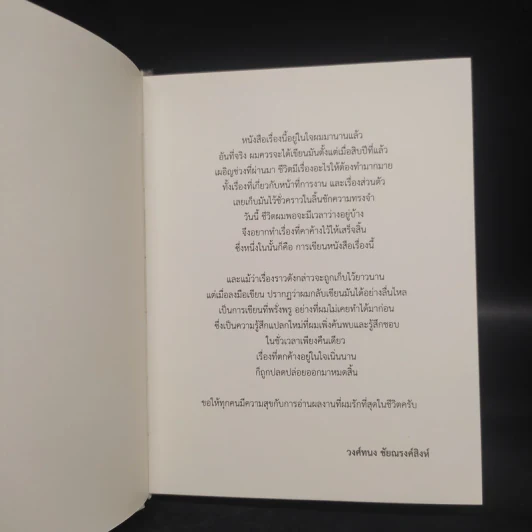 หนังสือเรื่องนี้อยู่ในใจผมมานานแล้ว
อันที่จริง ผมควรจะได้เขียนมันตั้งแต่เมื่อสิบปีที่แล้ว
เผอิญช่วงที่ผ่านมา ชีวิตมีเรื่องอะไรให้ต้องทำมากมาย
ทั้งเรื่องที่เกี่ยวกับหน้าที่การงาน และเรื่องส่วนตัว
เลยเก็บมันไว้ชั่วคราวในลิ้นชักความทรงจำ
วันนี้ ชีวิตผมพอจะมีเวลาว่างอยู่บ้าง
จึงอยากทำเรื่องที่คาค้างไว้ให้เสร็จสิ้น
ซึ่งหนึ่งในนั้นก็คือ การเขียนหนังสือเรื่องนี้
และแม้ว่าเรื่องราวดังกล่าวจะถูกเก็บไว้ยาวนาน
แต่เมื่อลงมือเขียน ปรากฏว่าผมกลับเขียนมันได้อย่างลื่นไหล
เป็นการเขียนที่พรั่งพรู อย่างที่ผมไม่เคยทำได้มาก่อน
ซึ่งเป็นความรู้สึกแปลกใหม่ที่ผมเพิ่งค้นพบและรู้สึกชอบ
ในชั่วเวลาเพียงคืนเดียว
เรื่องที่ตกค้างอยู่ในใจเนิ่นนาน
ก็ถูกปลดปล่อยออกมาหมดสิ้น
ขอให้ทุกคนมีความสุขกับการอ่านผลงานที่ผมรักที่สุดในชีวิตครับ
วงศ์ทนง ชัยณรงค์สิงห์